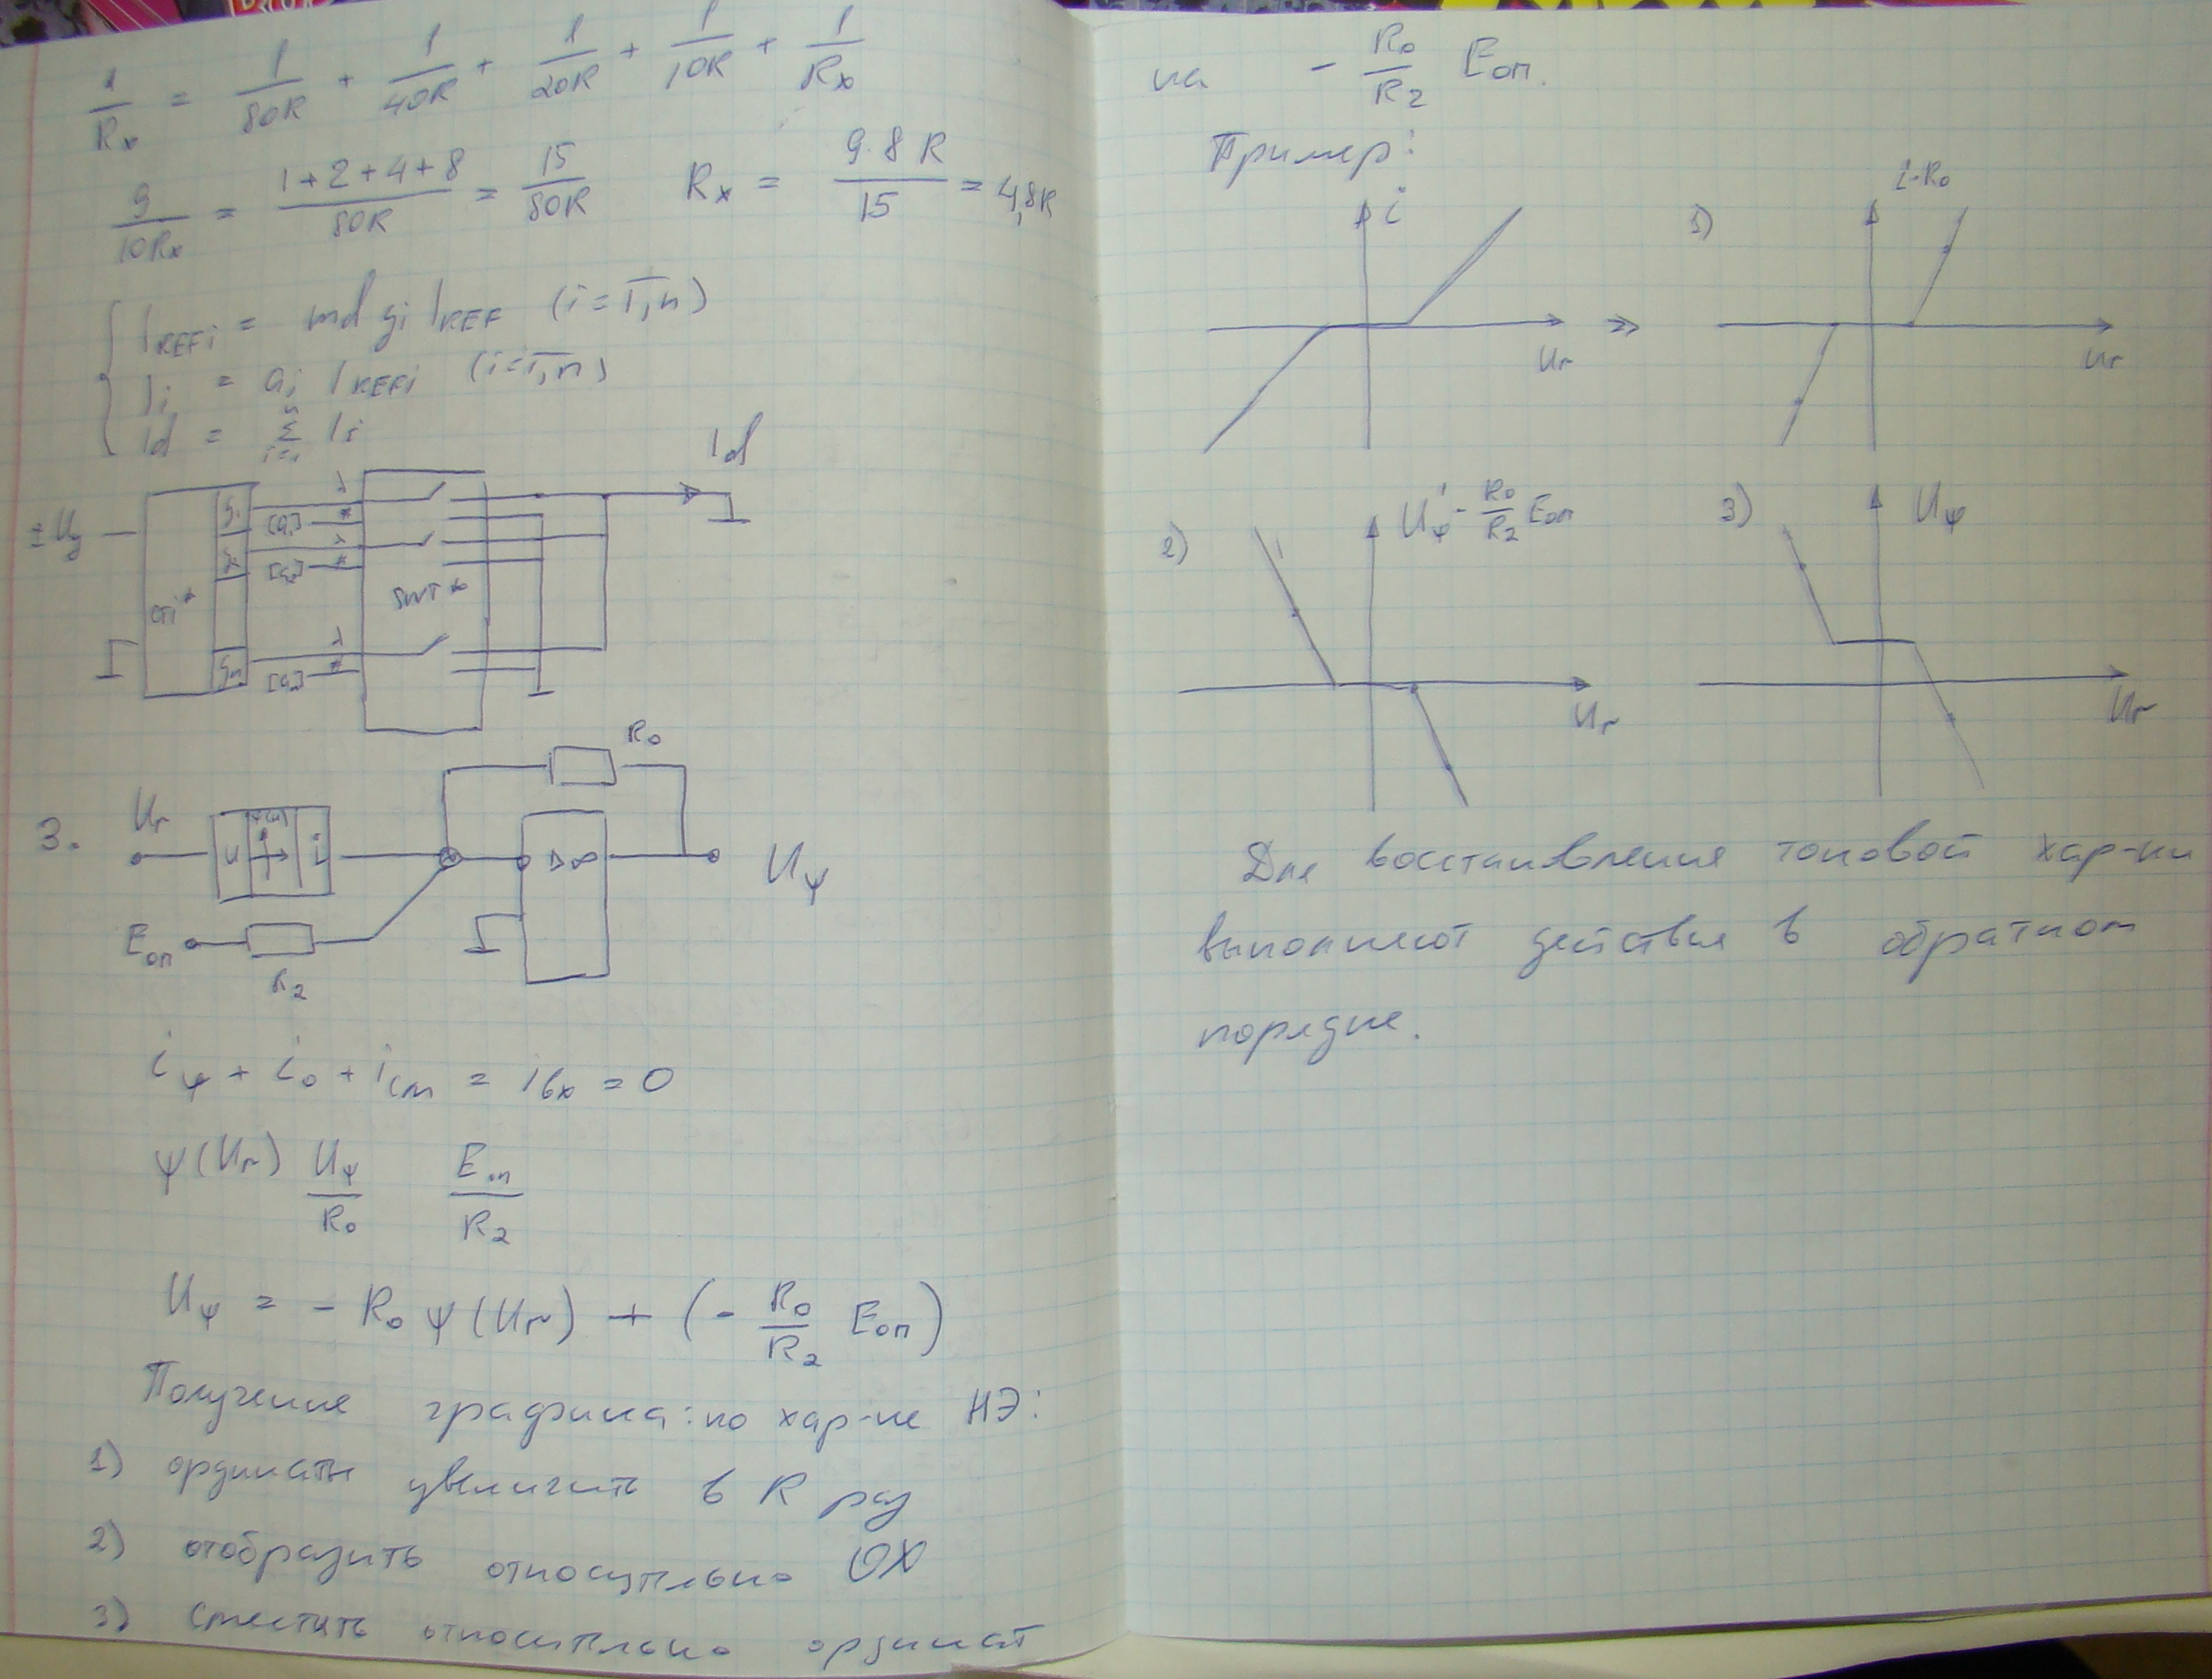 1/Rx = 1/80R + 1/40R + 1/20R + 1/10R + 1/Rx
9/10Rx = (1+2+4+8)/80R = 15/80R Rx = 9·8R/15 = 4,8R
I REFi = md gi I REF (i=1,n)
Ii = ai I REFi (i=1,n)
Id = Σ i=1 n Ii
Id
g1
[a1]
λ
*
±Ug
[a2]
λ
*
SWT*
gn
[an]
λ
*
R0
3.
Ur
U
i
▷∞
Uψ
Eоп
R2
iψ + i0 + iсм = iвх = 0
ψ(Ur) Uψ/R0 Eоп/R2
Uψ = - R0 ψ(Ur) + (- R0/R2 Eоп)
Получение графика: по хар-ке НЭ:
1) ординаты увеличить в R раз
2) отобразить относительно OX
3) сместить относительно ординат
на - R0/R2 Eоп.
Пример:
i
Ur
≫
1)
i·R0
Ur
2)
Uψ - R0/R2 Eоп
Ur
3)
Uψ
Ur
Для восстановления токовой хар-ки
выполняют действия в обратном
порядке.